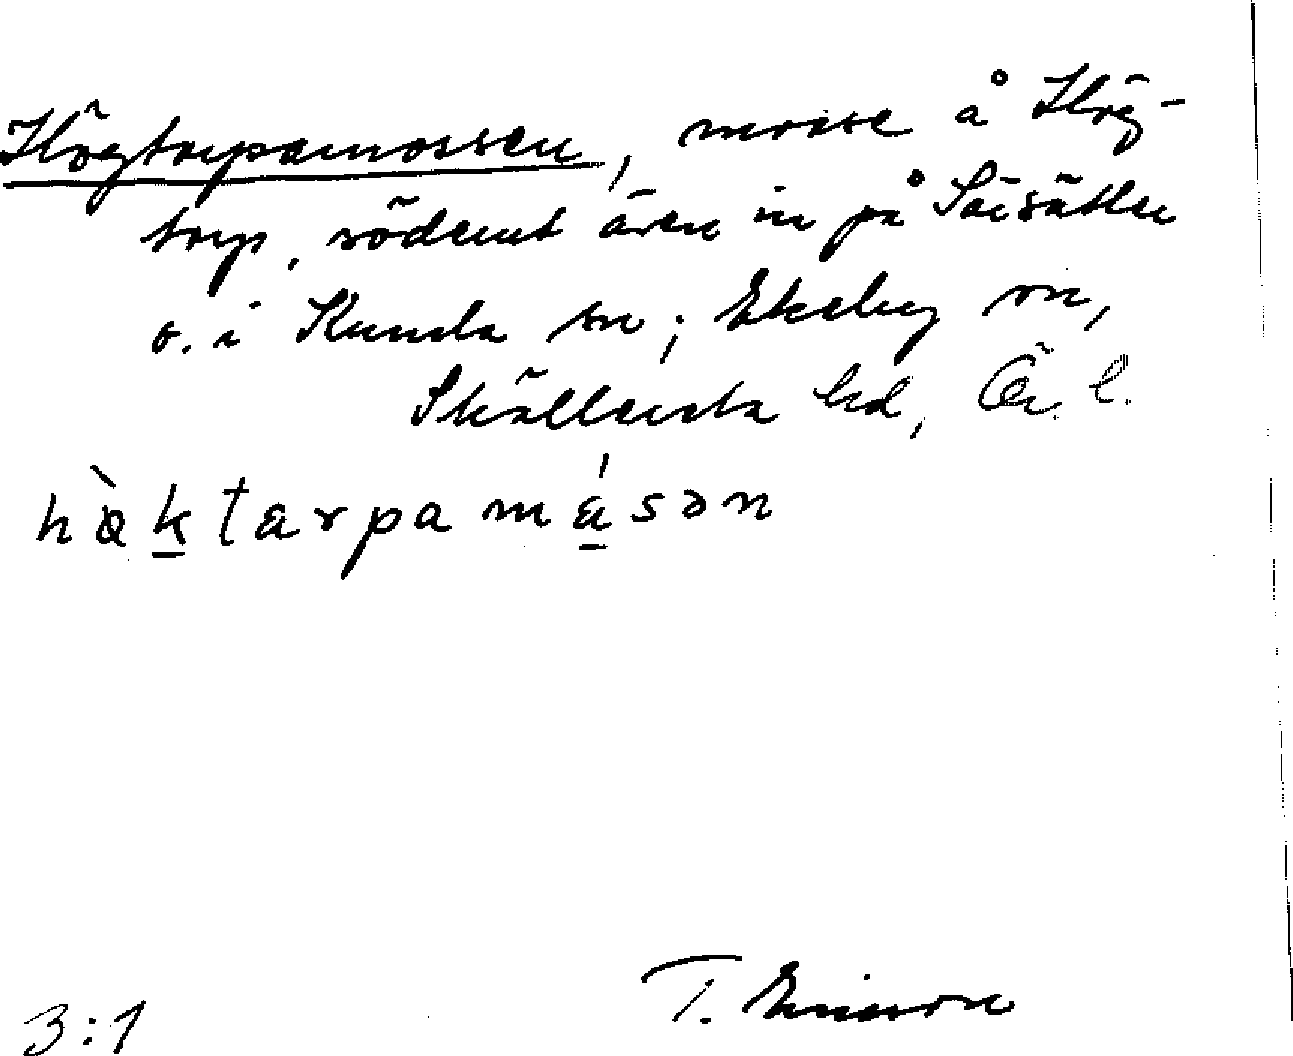 Högtorpamossen, mosse å Hög-
torp, söderut även in på Säsätter
o. i Kumla sn; Ekeby sn,
Skyllersta hd, Ör. l.
hö̀ktarpamásən
3:1 T. Ericsson